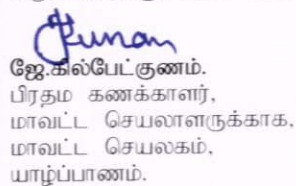 ஜே.கில்பேட்குணம்.
பிரதம கணக்காளர்,
மாவட்ட செயலாளருக்காக,
மாவட்ட செயலகம்,
யாழ்ப்பாணம்.